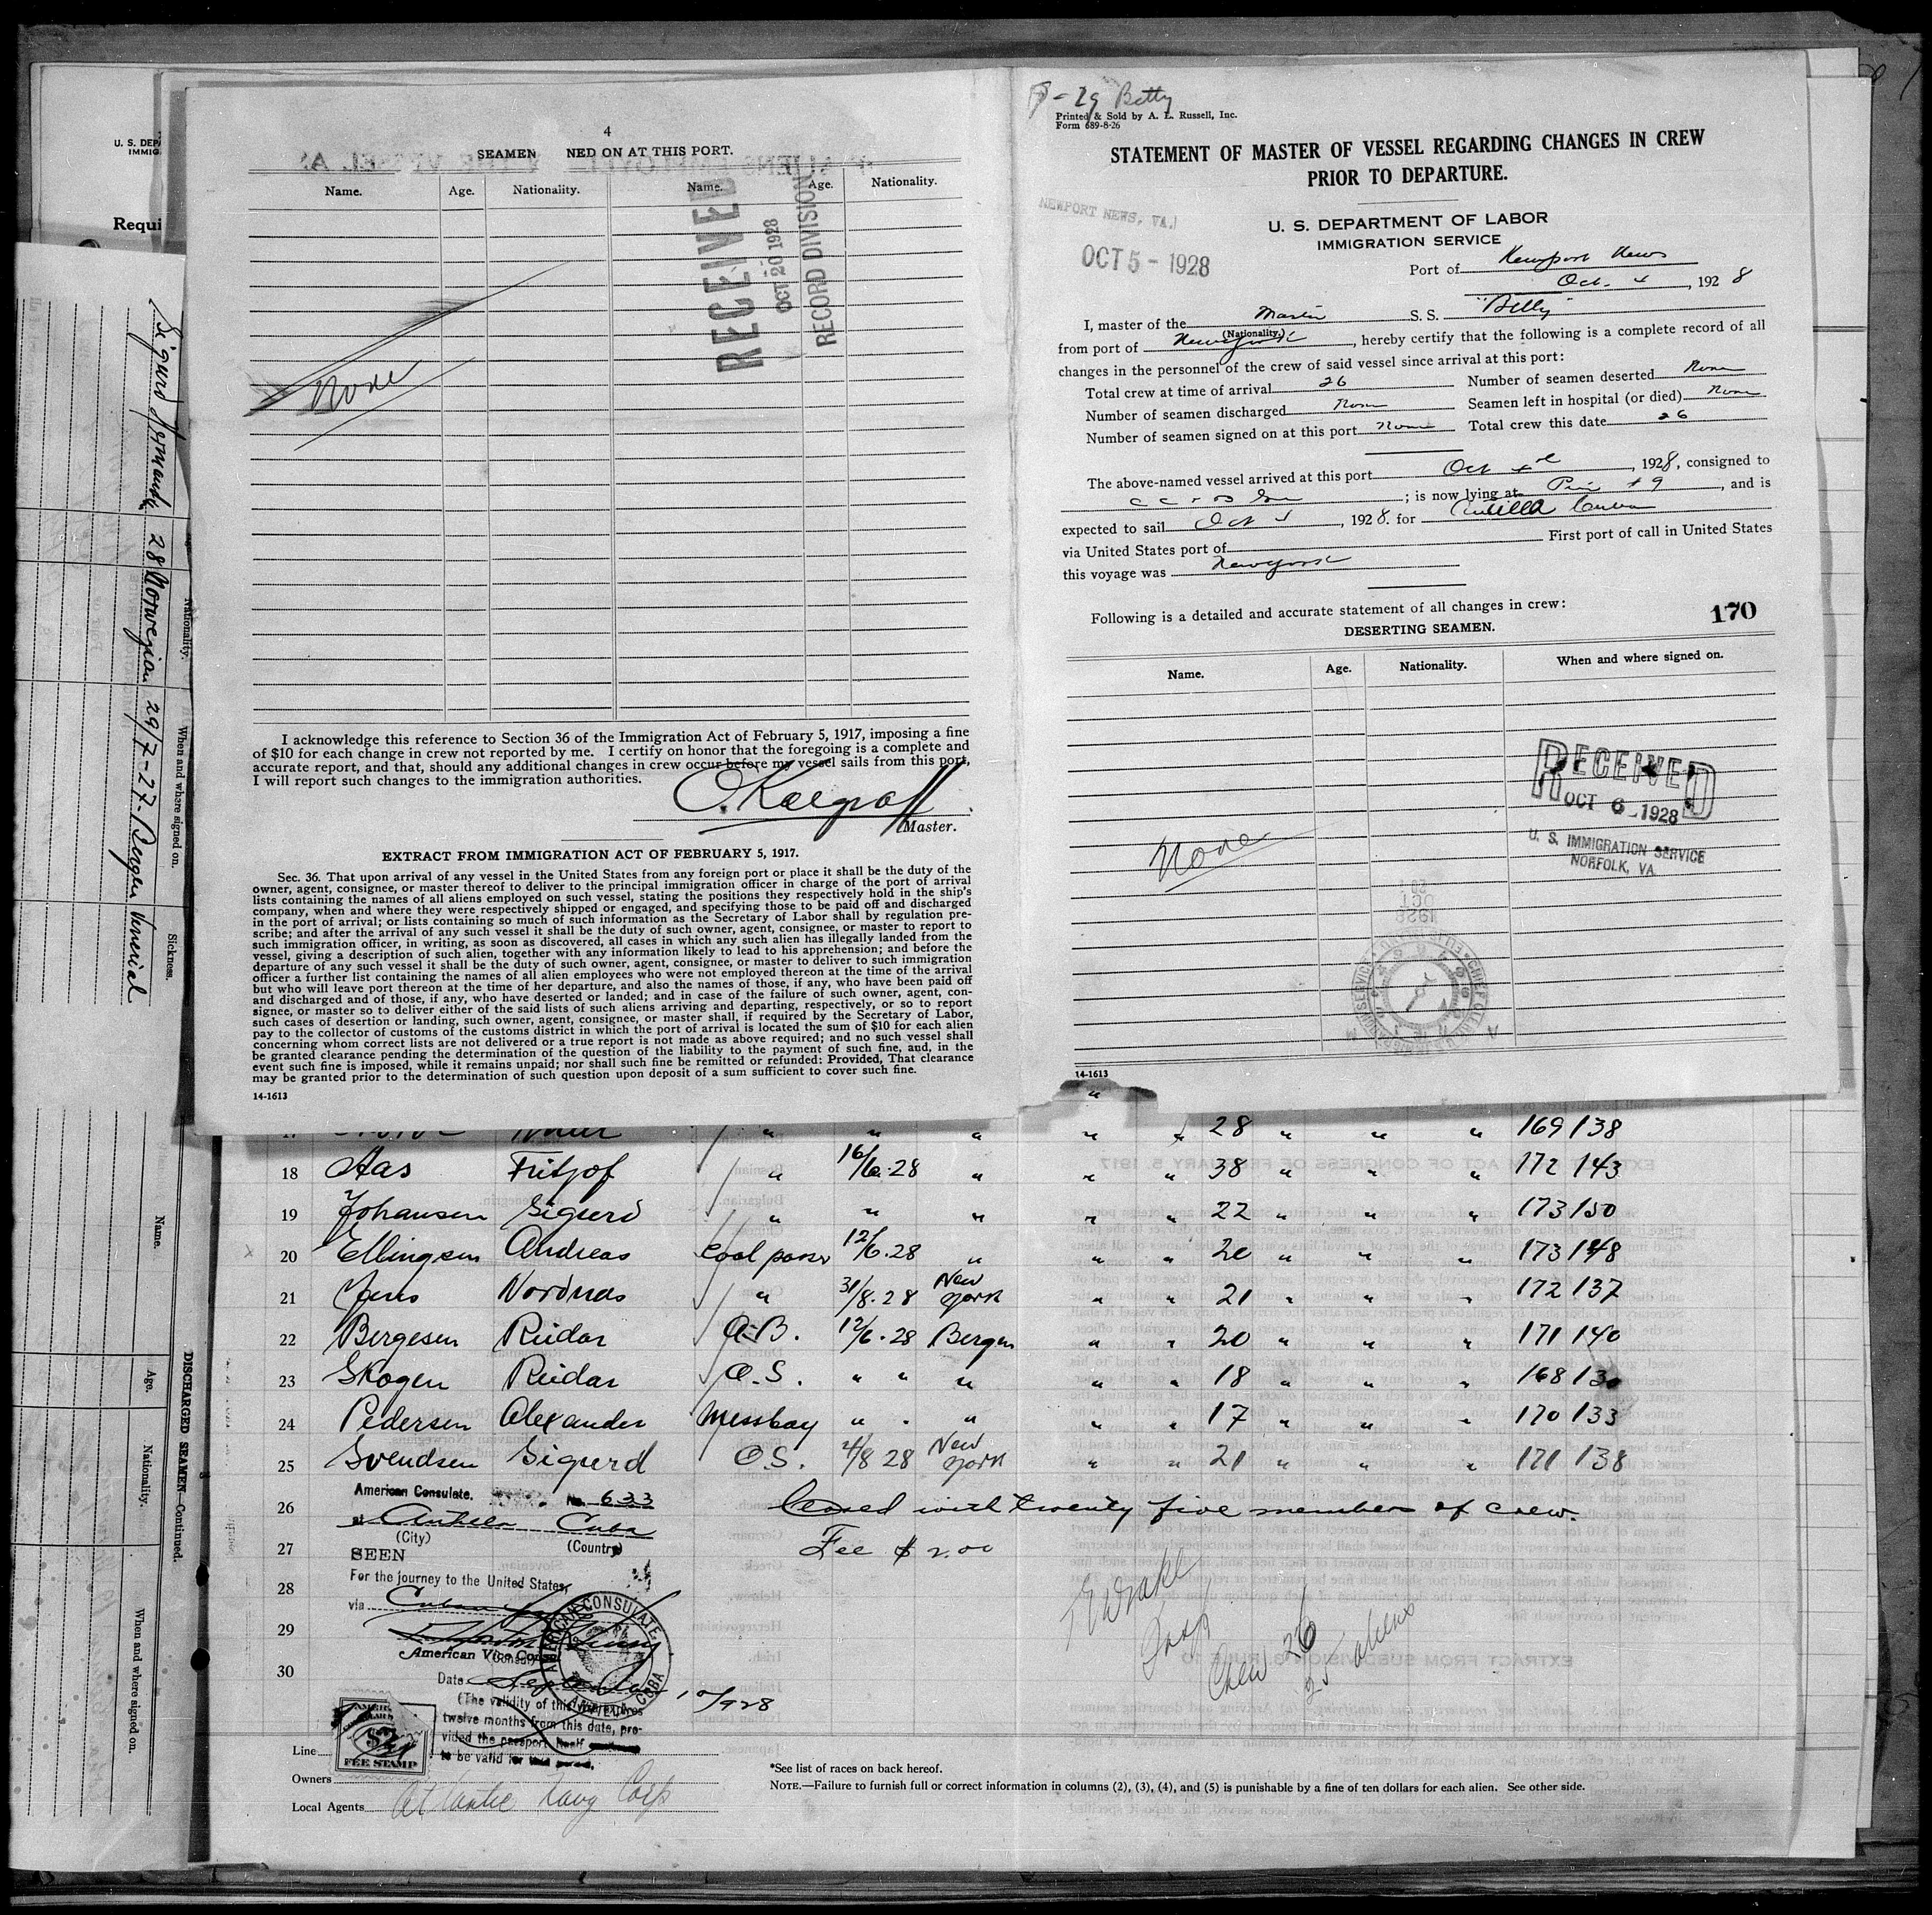 4
SEAMEN NED ON AT THIS PORT.
Name. Age. Nationality. Name. Age. Nationality.
RECEIVED
OCT 20 1928
RECORD DIVISION
None
I acknowledge this reference to Section 36 of the Immigration Act of February 5, 1917, imposing a fine
of $10 for each change in crew not reported by me. I certify on honor that the foregoing is a complete and
accurate report, and that, should any additional changes in crew occur before my vessel sails from this port,
I will report such changes to the immigration authorities.
Master.
EXTRACT FROM IMMIGRATION ACT OF FEBRUARY 5, 1917.
Sec. 36. That upon arrival of any vessel in the United States from any foreign port or place it shall be the duty of the
owner, agent, consignee, or master thereof to deliver to the principal immigration officer in charge of the port of arrival
lists containing the names of all aliens employed on such vessel, stating the positions they respectively hold in the ship's
company, when and where they were respectively shipped or engaged, and specifying those to be paid off and discharged
in the port of arrival; or lists containing so much of such information as the Secretary of Labor shall by regulation pre-
scribe; and after the arrival of any such vessel it shall be the duty of such owner, agent, consignee, or master to report to
such immigration officer, in writing, as soon as discovered, all cases in which any such alien has illegally landed from the
vessel, giving a description of such alien, together with any information likely to lead to his apprehension; and before the
departure of any such vessel it shall be the duty of such owner, agent, consignee, or master to deliver to such immigration
officer a further list containing the names of all alien employees who were not employed thereon at the time of the arrival
but who will leave port thereon at the time of her departure, and also the names of those, if any, who have been paid off
and discharged and of those, if any, who have deserted or landed; and in case of the failure of such owner, agent, con-
signee, or master so to deliver either of the said lists of such aliens arriving and departing, respectively, or so to report
such cases of desertion or landing, such owner, agent, consignee, or master shall, if required by the Secretary of Labor,
pay to the collector of customs of the customs district in which the port of arrival is located the sum of $10 for each alien
concerning whom correct lists are not delivered or a true report is not made as above required; and no such vessel shall
be granted clearance pending the determination of the question of the liability to the payment of such fine, and, in the
event such fine is imposed, while it remains unpaid; nor shall such fine be remitted or refunded: Provided, That clearance
may be granted prior to the determination of such question upon deposit of a sum sufficient to cover such fine.
14-1613
Betty
Printed & Sold by A. L. Russell, Inc.
Form 689-8-26
STATEMENT OF MASTER OF VESSEL REGARDING CHANGES IN CREW
PRIOR TO DEPARTURE.
NEWPORT NEWS, VA.
OCT 5 - 1928
U. S. DEPARTMENT OF LABOR
IMMIGRATION SERVICE
Port of Newport News
Oct. 4, 1928
I, master of the Master S. S. "Betty"
(Nationality.)
from port of New York, hereby certify that the following is a complete record of all
changes in the personnel of the crew of said vessel since arrival at this port:
Total crew at time of arrival 26 Number of seamen deserted None
Number of seamen discharged None Seamen left in hospital (or died) None
Number of seamen signed on at this port None Total crew this date 26
The above-named vessel arrived at this port Oct 4, 1928, consigned to
; is now lying at Pier #9, and is
expected to sail Oct 4, 1928. for Antilla Cuba
via United States port of First port of call in United States
this voyage was New York
Following is a detailed and accurate statement of all changes in crew:
170
DESERTING SEAMEN.
Name. Age. Nationality. When and where signed on.
RECEIVED
OCT 6 - 1928
U. S. IMMIGRATION SERVICE
NORFOLK, VA
None
14-1613
" " " " " 28 " " " 169 138
18 Aas Fritjof " 16/6.28 " " " 38 " " " 172 143
19 Johansen Sigurd " " " " " 22 " " " 173 150
20 Ellingsen Andreas Coal passer 12/6.28 " " " 20 " " " 173 148
21 Jens Nordnas " 31/8.28 New York " " 21 " " " 172 137
22 Bergesen Reidar A.B. 12/6.28 Bergen " " 20 " " " 171 140
23 Skogen Reidar O.S. " " " " " 18 " " " 168 130
24 Pedersen Alexander Messboy " " " " " 17 " " " 170 133
25 Svendsen Sigurd O.S. 4/8 28 New York " " 21 " " " 171 138
American Consulate. No. 633
26 Closed with twenty five members of crew.
at Antilla Cuba
(City) (Country)
27 Fee $2.00
SEEN
For the journey to the United States,
28
via Cuban
29
American Vice Consul
AMERICAN CONSULATE
ANTILLA, CUBA
30
Date
1928
(The validity of this visa expires
twelve months from this date, pro-
vided the passport itself
to be valid for that period.
$2
FEE STAMP
Crew 26
25 aliens
Line
Owners
Local Agents Atlantic Navg Corp
*See list of races on back hereof.
NOTE.—Failure to furnish full or correct information in columns (2), (3), (4), and (5) is punishable by a fine of ten dollars for each alien. See other side.
U. S. DEPA
IMMIG
Requi
Sigurd Hermansen 28 Norwegian 29/7-27. Bergen Venerial
Nationality. When and where signed on. Sickness.
DISCHARGED SEAMEN—Continued.
Name. Age. Nationality. When and where signed on.